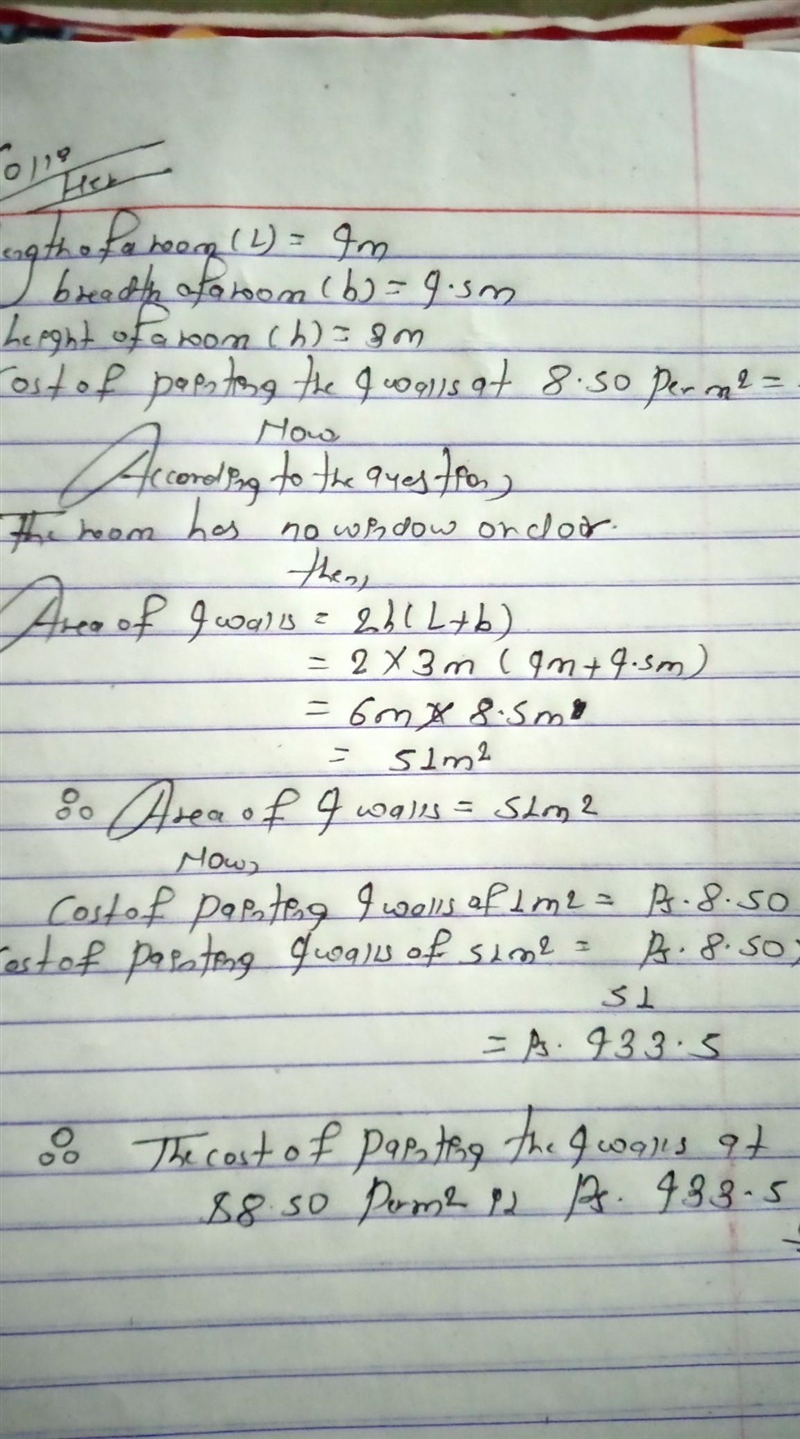 ength of a room (L) = 4m
breadth of a room (b) = 4.5m
height of a room (h) = 3m
Cost of painting the 4 walls at 8.50 per m² =
Now
According to the question,
The room has no window or door.
then,
Area of 4 walls = 2h(L+b)
= 2 × 3m (4m + 4.5m)
= 6m × 8.5m
= 51m²
∴ Area of 4 walls = 51m²
Now,
Cost of painting 4 walls of 1m² = Rs. 8.50
Cost of painting 4 walls of 51m² = Rs. 8.50 ×
51
= Rs. 433.5
∴ The cost of painting the 4 walls at
8.50 per m² is Rs. 433.5